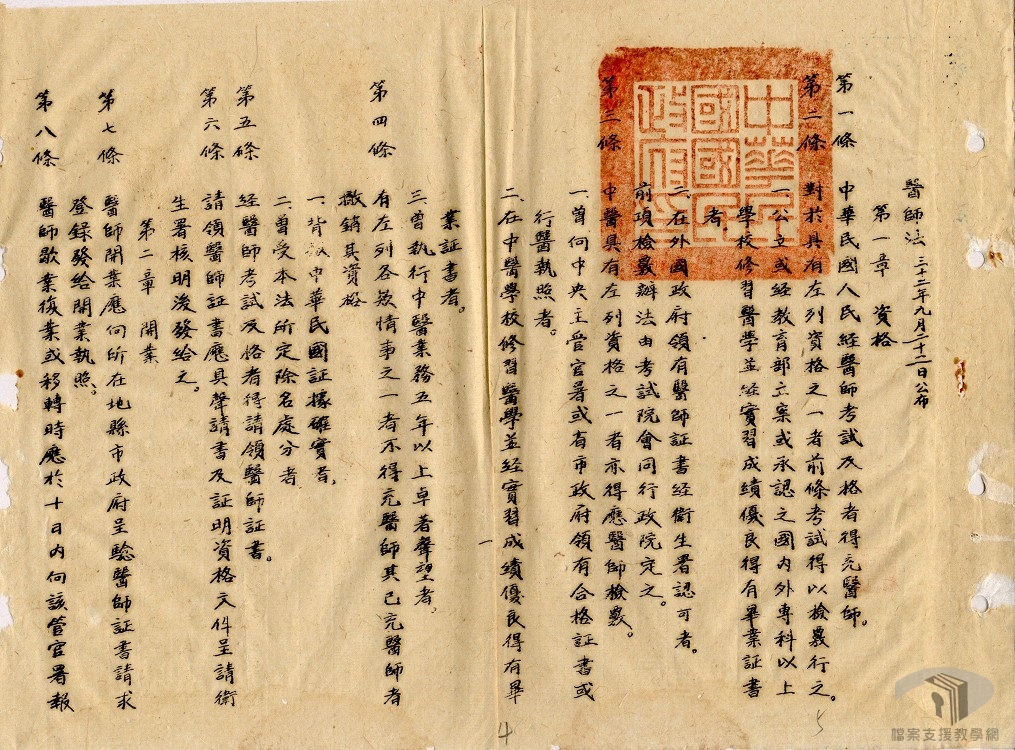 醫師法 三十二年九月二十二日公布
第一章 資格
第一條 中華民國人民經醫師考試及格者得充醫師。
第二條 對於具有左列資格之一者前條考試得以檢覈行之。
一、公立或經教育部立案或承認之國內外專科以上
學校修習醫學並經實習成績優良得有畢業証書
者。
二、在外國政府領有醫師証書經衛生署認可者。
前項檢覈辦法由考試院會同行政院定之。
第三條 中醫具有左列資格之一者亦得應醫師檢覈。
一、曾向中央主管官署或省市政府領有合格証書或
行醫執照者。
二、在中醫學校修習醫學並經實習成績優良得有畢
業証書者。
三、曾執行中醫業務五年以上卓著聲望者。
第四條 有左列各款情事之一者不得充醫師其已充醫師者
撤銷其資格
一、背叛中華民國証據確實者。
二、曾受本法所定除名處分者
第五條 經醫師考試及格者得請領醫師証書。
第六條 請領醫師証書應具聲請書及証明資格文件呈請衛
生署核明後發給之。
第二章 開業
第七條 醫師開業應向所在地縣市政府呈驗醫師証書請求
登錄發給開業執照。
第八條 醫師歇業復業或移轉時應於十日內向該管官署報
一
4
5
中華民國國民政府之印
檔案支援教學網